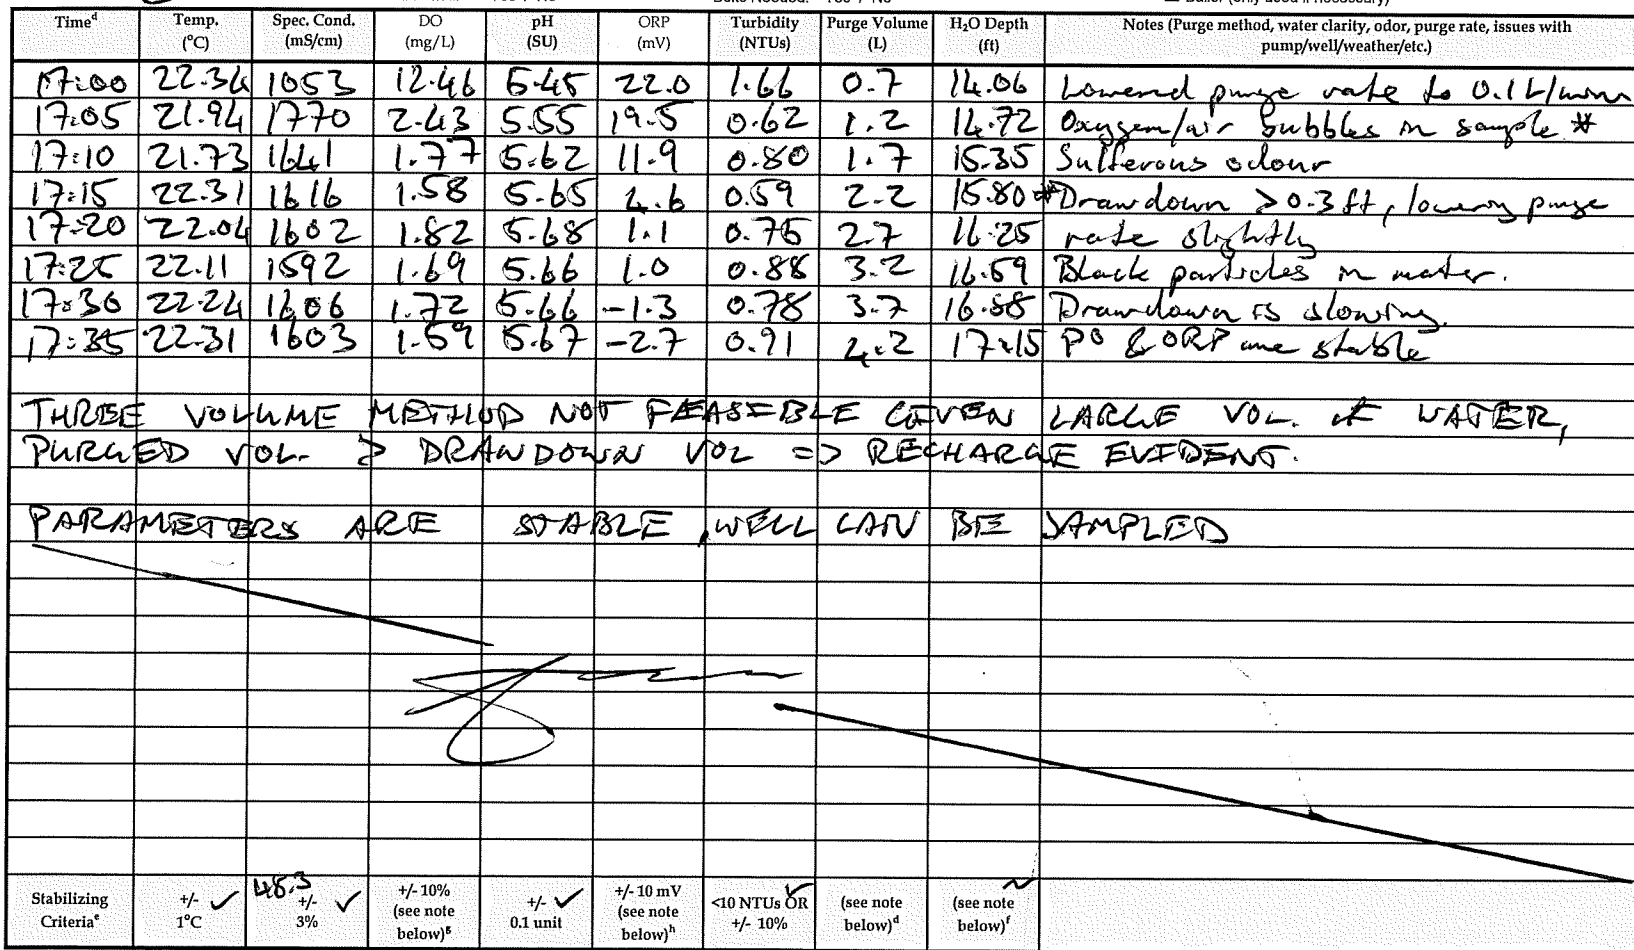 Time^d Temp. (°C) Spec. Cond. (mS/cm) DO (mg/L) pH (SU) ORP (mV) Turbidity (NTUs) Purge Volume (L) H2O Depth (ft) Notes (Purge method, water clarity, odor, purge rate, issues with pump/well/weather/etc.)
17:00 22.34 1053 12.46 5.45 22.0 1.66 0.7 14.06 Lowered purge rate to 0.1L/min
17:05 21.94 1770 2.43 5.55 19.5 0.62 1.2 14.72 Oxygen/air bubbles in sample *
17:10 21.73 1641 1.77 5.62 11.9 0.80 1.7 15.35 Sulferous odour
17:15 22.31 1616 1.58 5.65 4.6 0.59 2.2 15.80 *Drawdown >0.3ft, lowering purge
17:20 22.04 1602 1.82 5.68 1.1 0.75 2.7 16.25 rate slightly
17:25 22.11 1592 1.69 5.66 1.0 0.88 3.2 16.59 Black particles in water.
17:30 22.24 1606 1.72 5.66 -1.3 0.78 3.7 16.88 Drawdown is slowing.
17:35 22.31 1603 1.59 5.67 -2.7 0.91 4.2 17.15 DO & ORP are stable
THREE VOLUME METHOD NOT FEASEBLE GIVEN LARGE VOL. OF WATER,
PURGED VOL. > DRAWDOWN VOL => RECHARGE EVIDENT.
PARAMETERS ARE STABLE, WELL CAN BE SAMPLED
Stabilizing Criteria^e +/- 1°C ✓ 48.3 +/- 3% ✓ +/- 10% (see note below)^g +/- 0.1 unit ✓ +/- 10 mV (see note below)^h <10 NTUs OR +/- 10% ✓ (see note below)^d ~ (see note below)^f